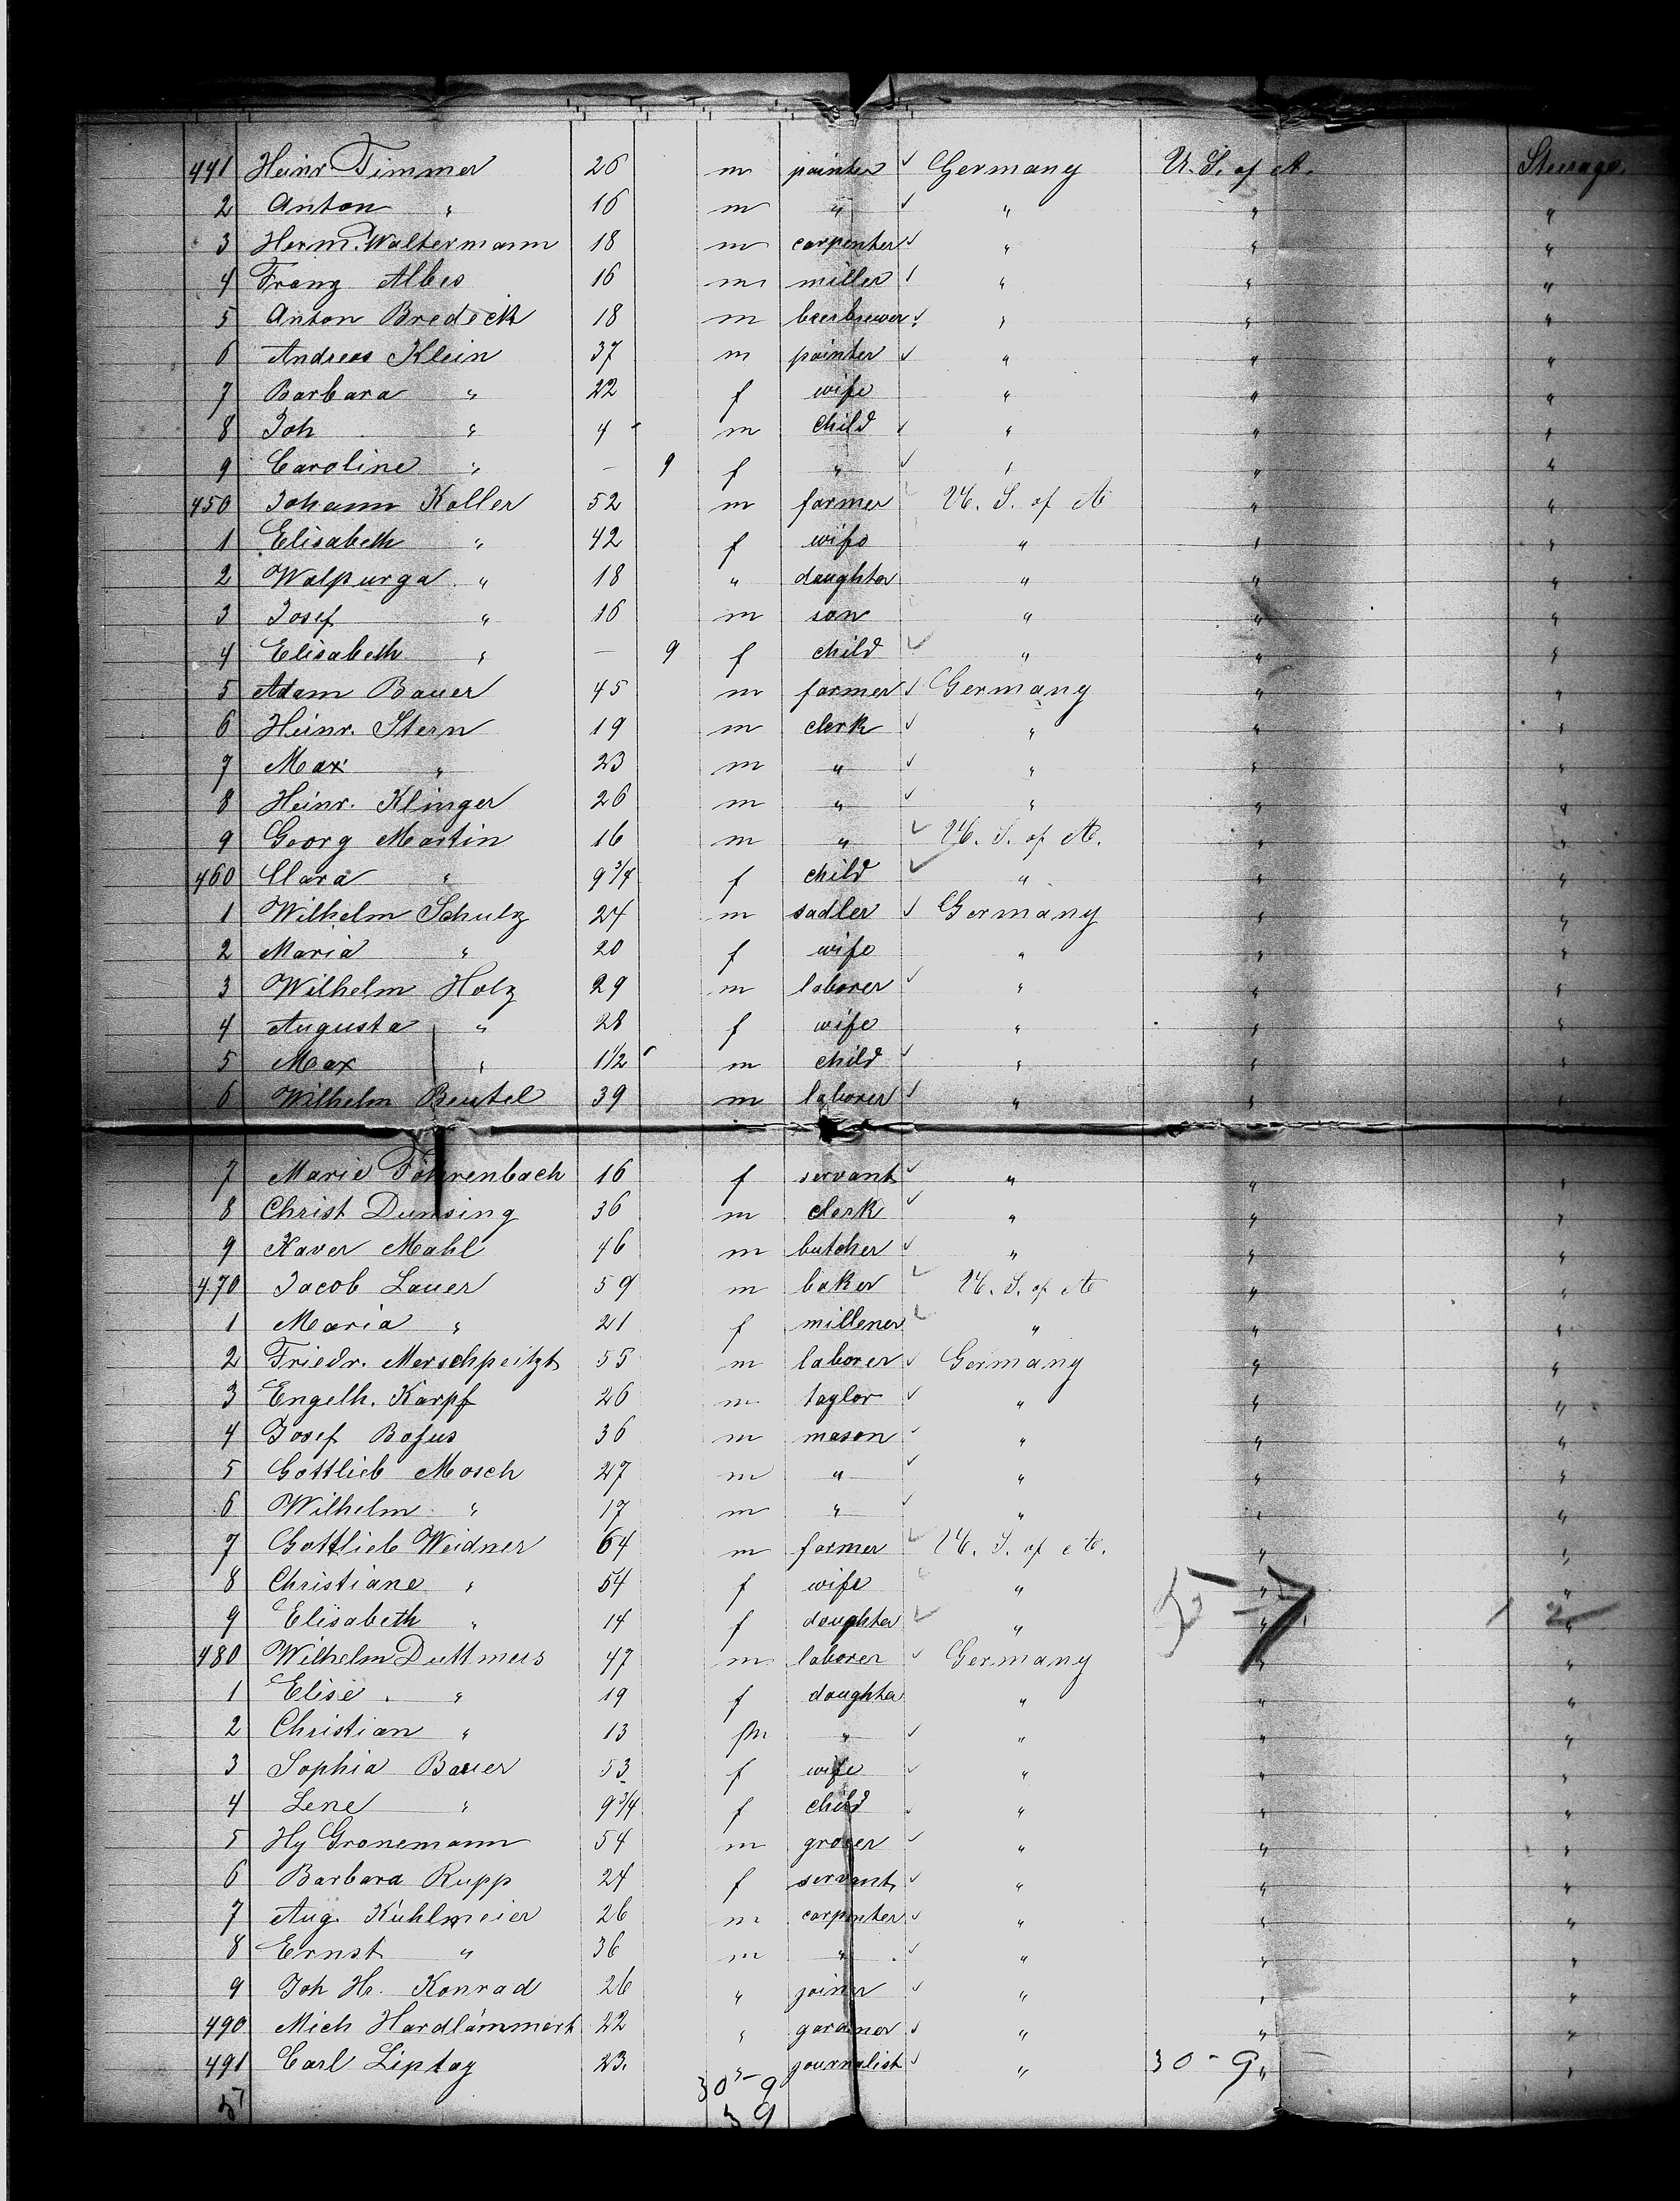 441 Heinr Timmer 26 m painter ✓ Germany U. S. of A. Steerage.
2 Anton " 16 m " ✓ " " "
3 Herm. Waltermann 18 m carpenter ✓ " " "
4 Franz Albes 16 m miller ✓ " " "
5 Anton Bredeck 18 m beerbrewer ✓ " " "
6 Andreas Klein 37 m painter ✓ " " "
7 Barbara " 22 f wife " " "
8 Joh " 4 m child ✓ " " "
9 Caroline " — 9 f " ✓ " " "
450 Johann Koller 52 m farmer U. S. of A " "
1 Elisabeth " 42 f wife " " "
2 Walpurga " 18 " daughter " " "
3 Josef " 16 m son " " "
4 Elisabeth " — 9 f child ✓ " " "
5 Adam Bauer 45 m farmer ✓ Germany " "
6 Heinr. Stern 19 m clerk ✓ " " "
7 Max " 23 m " ✓ " " "
8 Heinr. Klinger 26 m " ✓ " " "
9 Georg Martin 16 m " ✓ U. S. of A. " "
460 Clara " 9 3/4 f child ✓ " " "
1 Wilhelm Schulz 24 m sadler ✓ Germany " "
2 Maria " 20 f wife " " "
3 Wilhelm Holz 29 m laborer ✓ " " "
4 Augusta " 28 f wife " " "
5 Max " 1 1/2 m child ✓ " " "
6 Wilhelm Beutel 39 m laborer ✓ " " "
7 Marie Föhrenbach 16 f servant ✓ " " "
8 Christ Dunsing 36 m clerk ✓ " " "
9 Xaver Mahl 46 m butcher ✓ " " "
470 Jacob Lauer 59 m baker ✓ U. S. of A " "
1 Maria " 21 f millener ✓ " " "
2 Friedr. Merschpeitzt 55 m laborer ✓ Germany " "
3 Engelh. Karpf 26 m taylor ✓ " " "
4 Josef Bofus 36 m mason ✓ " " "
5 Gottlieb Mosch 27 m " ✓ " " "
6 Wilhelm " 17 m " ✓ " " "
7 Gottlieb Weidner 64 m farmer ✓ U. S. of A. " "
8 Christiane " 54 f wife " " "
9 Elisabeth " 14 f daughter ✓ " " "
480 Wilhelm Duttmers 47 m laborer ✓ Germany " "
1 Elise " 19 f daughter " " "
2 Christian " 13 m " ✓ " " "
3 Sophia Bauer 53 f wife ✓ " " "
4 Lene " 9 3/4 f child ✓ " " "
5 Hy Gronemann 54 m grocer ✓ " " "
6 Barbara Rupp 24 f servant ✓ " " "
7 Aug. Kuhlmeier 26 m carpenter ✓ " " "
8 Ernst " 36 m " ✓ " " "
9 Joh Hr. Konrad 26 " joiner ✓ " " "
490 Mich Hardlämmert 22 " gardner ✓ " " "
491 Carl Liptay 23. " journalist ✓ " 30-9 " "
30-9
39